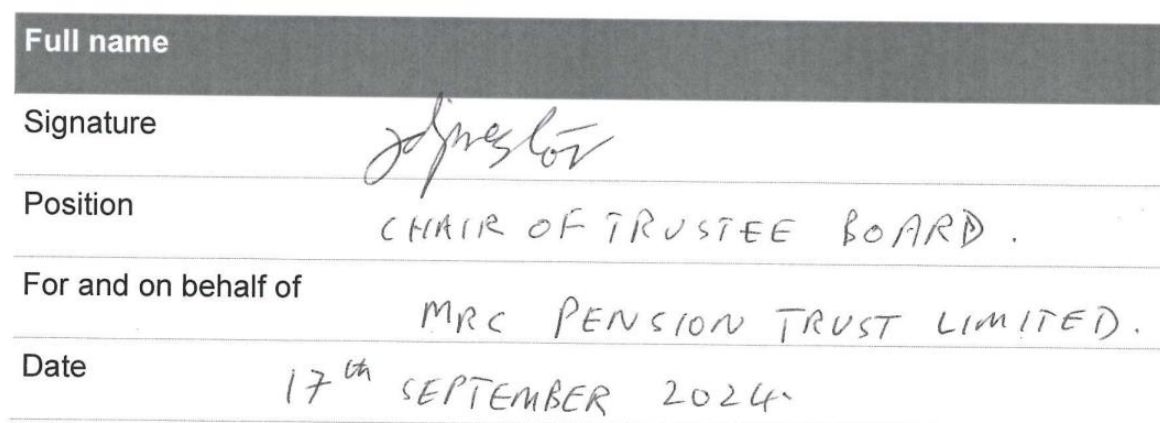 Full name
Signature
Position CHAIR OF TRUSTEE BOARD.
For and on behalf of MRC PENSION TRUST LIMITED.
Date 17th SEPTEMBER 2024.